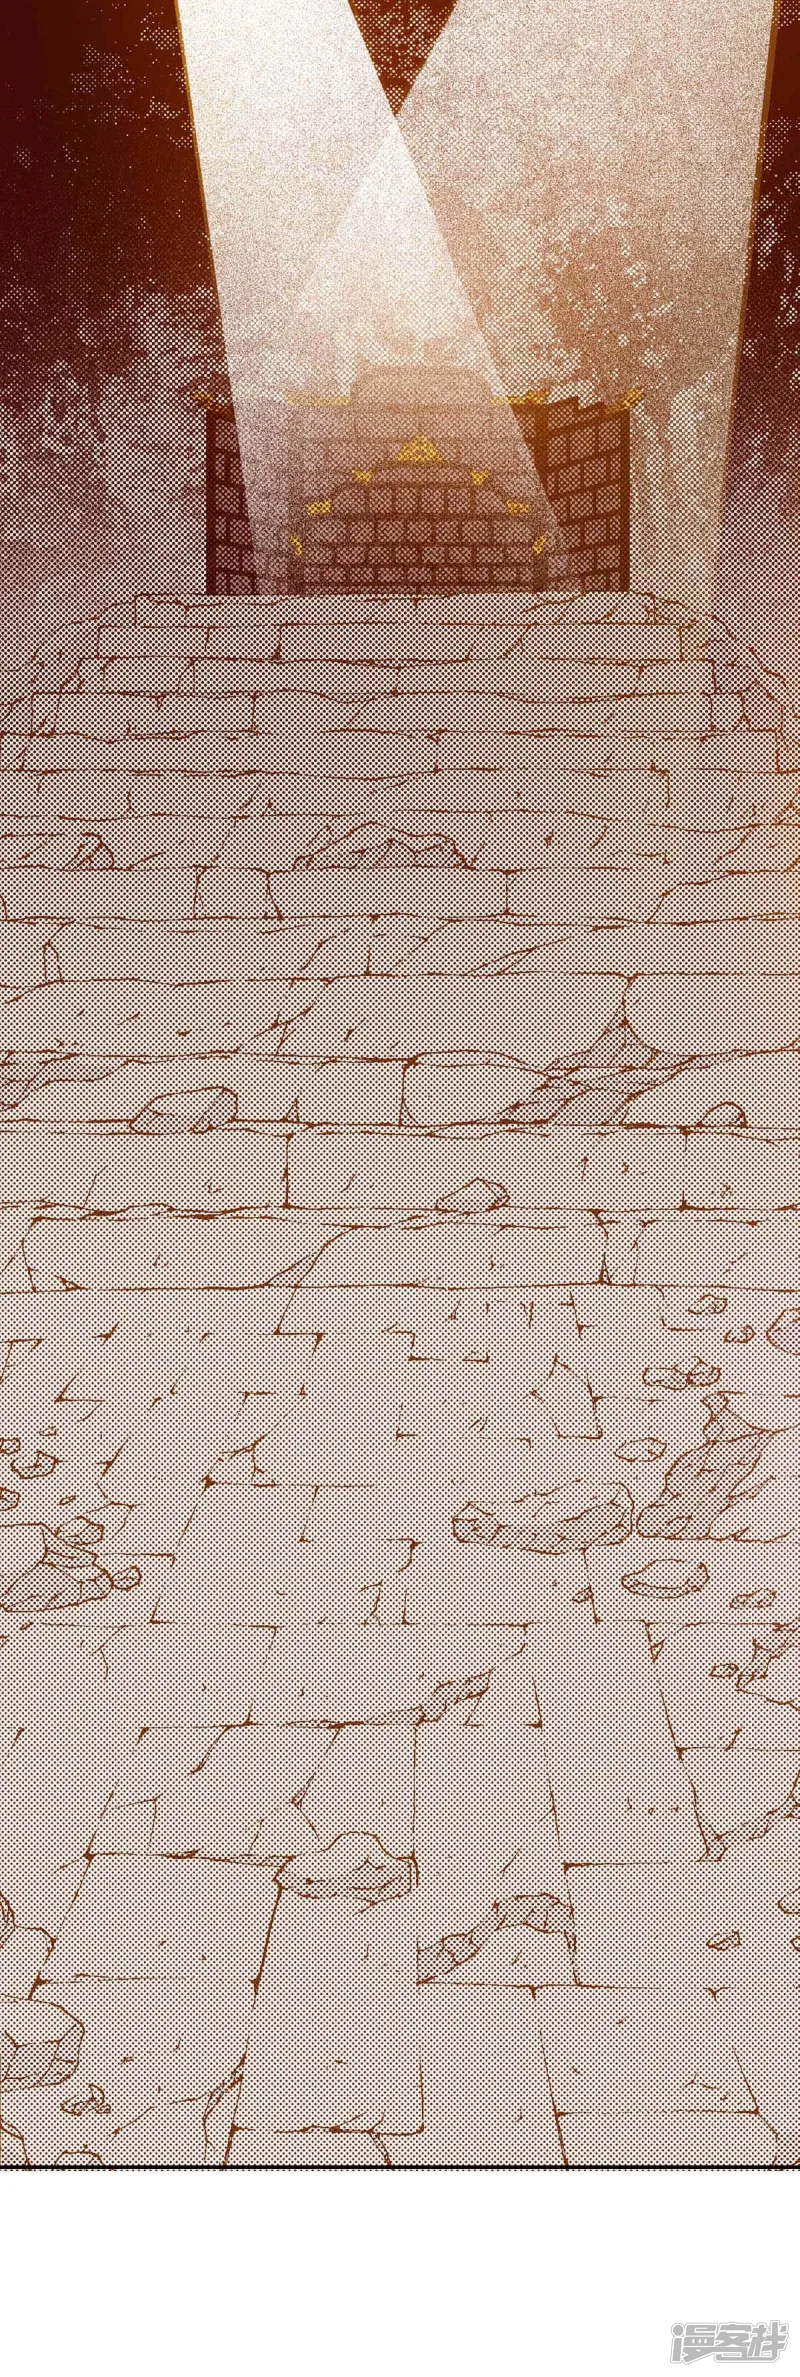 漫客栈